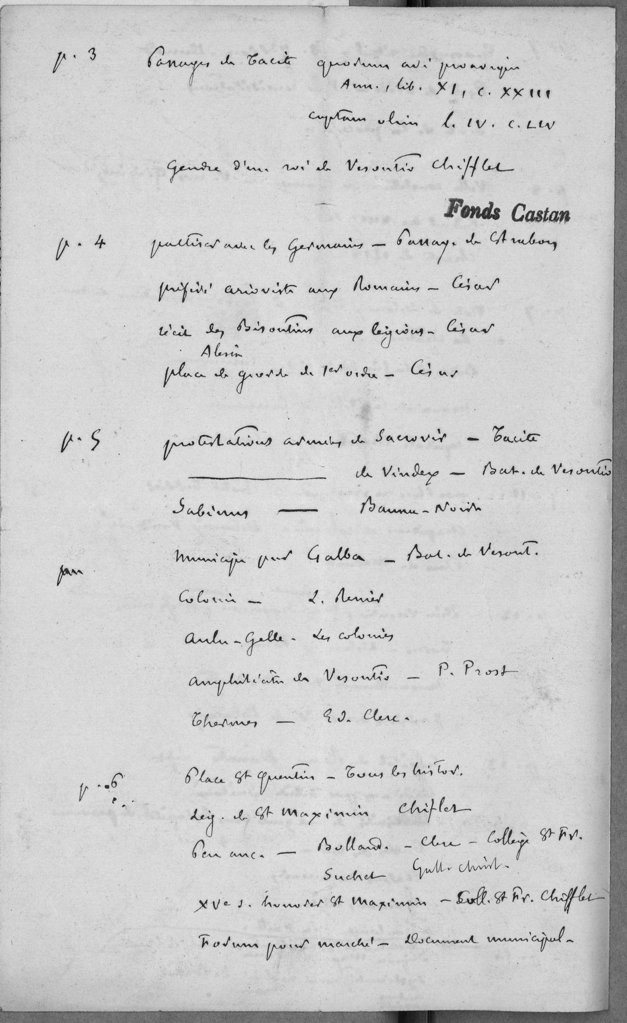 p. 3 Passages de Tacite quorum avi proavique
Ann., lib. XI, c. XXIII
captam olim l. IV. c. LIV
Gendre d'un roi de Vesontio Chifflet
Fonds Castan
p. 4 pactiser avec les Germains — Passage de Strabon
préféré arioviste aux Romains — César
récit des Bisontins aux légions — César
Alesia
place de guerre de 1er ordre — César
p. 5 protestations armées de Sacrovir — Tacite
de Vindex — Bat. de Vesontio
Sabinus — Baume-Noire
Municipe par Galba — Bat. de Vesont.
Colonie — L. Renier
Aulu-Gelle — Les colonies
amphithéâtre de Vesontio — P. Prost
Thermes — Ed. Clerc.
p. 6 Place St Quentin — Tous les histor.
Lég. de St Maximin Chiflet
Bolland. — Clerc — Collège St Fr.
Suchet Gall. Christ.
XVe s. honorer St Maximin — Coll. St Fr. Chifflet
Forum pour marché — Document municipal —